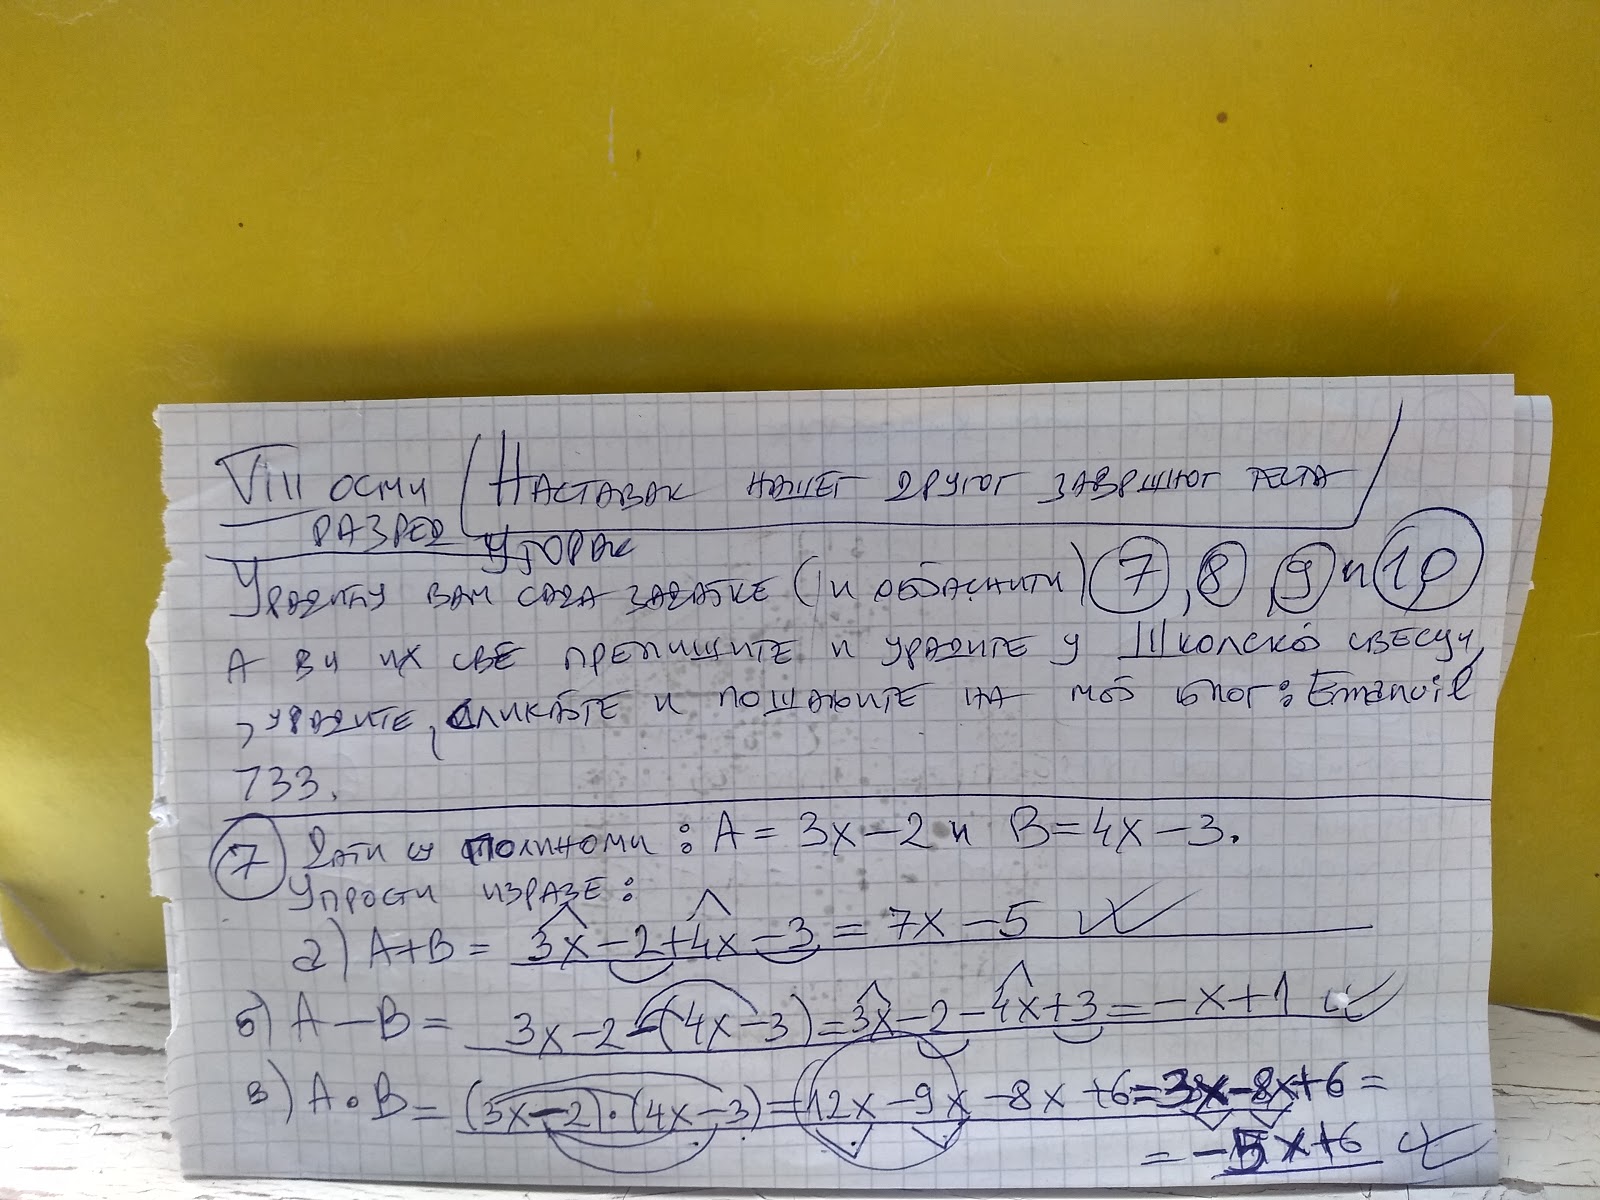 VIII ОСМИ РАЗРЕД
НАСТАВАК НАШЕГ ДРУГОГ ЗАВРШНОГ ТЕСТА
УТОРАК
УРАДИЋУ ВАМ САДА ЗАДАТКЕ (И ОБЈАСНИТИ) 7, 8, 9 И 10
А ВИ ИХ СВЕ ПРЕПИШИТЕ И УРАДИТЕ У ШКОЛСКОЈ СВЕСЦИ,
, УРАДИТЕ, СЛИКАЈТЕ И ПОШАЉИТЕ НА МОЈ БЛОГ: Emanuil
733.
7 ДАТИ СУ ПОЛИНОМИ: A = 3x - 2 И B = 4x - 3.
УПРОСТИ ИЗРАЗЕ:
а) A+B = 3x - 2 + 4x - 3 = 7x - 5
б) A - B = 3x - 2 - (4x - 3) = 3x - 2 - 4x + 3 = -x + 1
в) A • B = (3x - 2) • (4x - 3) = 12x - 9x - 8x + 6 = 3x - 8x + 6 =
= -5x + 6